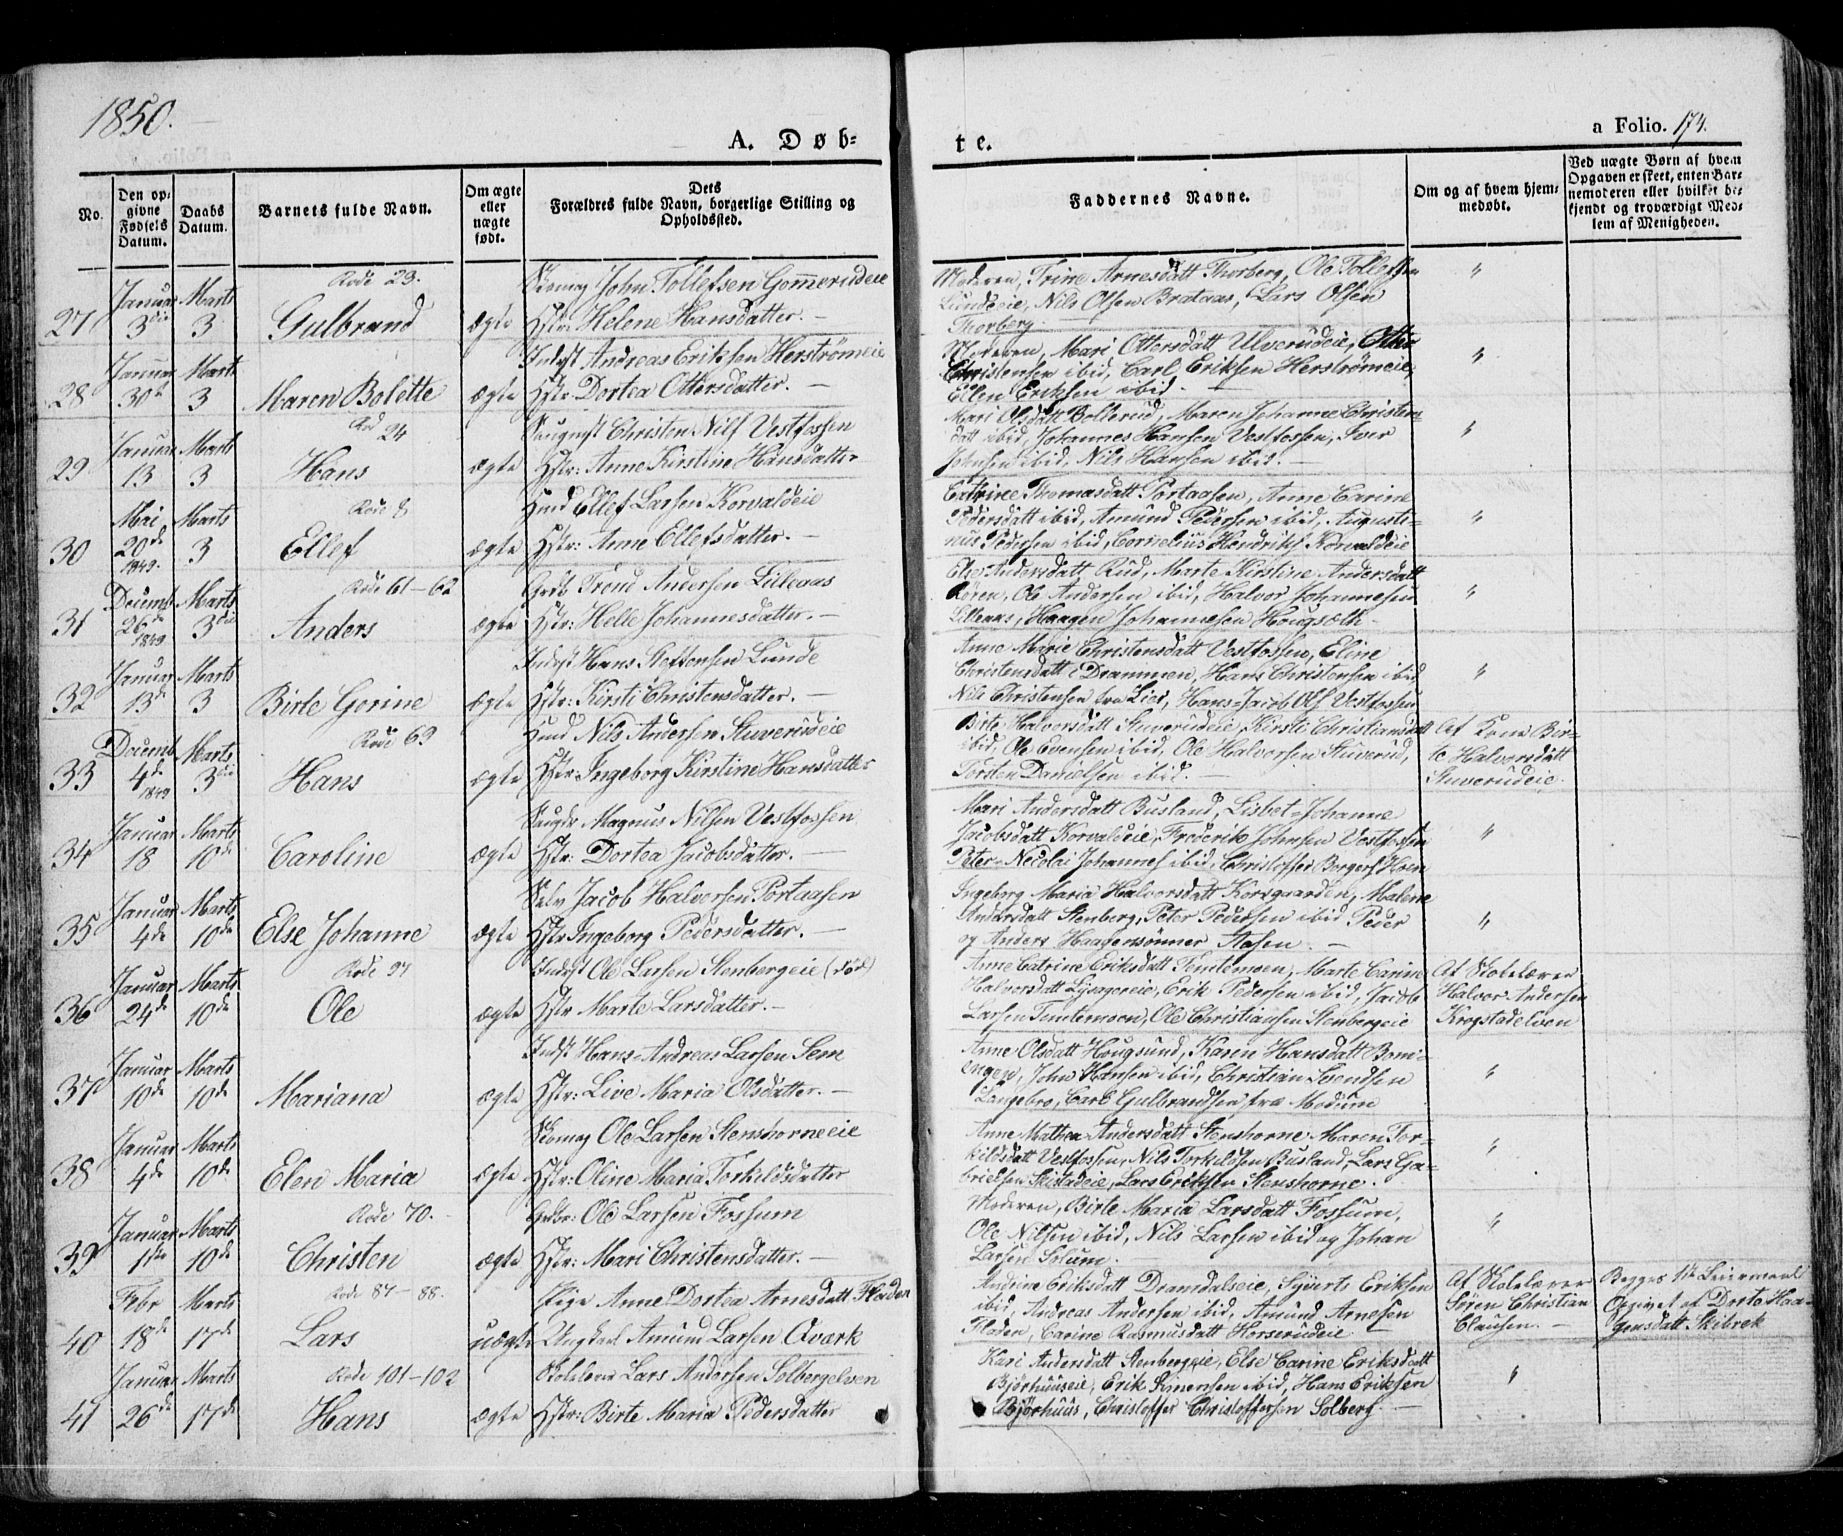 1850.
A. Døb-
te.
a Folio. 174.
No.
Den op-
givne
Fødsels
Datum.
Daabs
Datum.
Barnets fulde Navn.
Om ægte
eller
nægte
født.
Dets
Forældres fulde Navn, borgerlige Stilling og
Opholdssted.
Faddernes Navne.
Om og af hvem hjem-
medøbt.
Ved uægte Børn af hvem
Opgaven er skeet, enten Bar-
nemoderen eller hvilket be-
kjendt og troværdigt Med-
lem af Menigheden.
Rode 23.
27 Januar 3die Marts 3 Gulbrand ægte
John Tollefsen Gomerudeie
Hstr: Helene Hansdatter. —
Moderen, Trine Arnesdatt Thorberg, Ole Tollefsen
Lundeeie, Nils Olsen Brataas, Lars Olsen
Thorberg
"
28 Januar 30te Marts 3 Maren Bolette ægte
Indst Andreas Eriksen Herströmeie
Hstr: Dortea Ottersdatter. —
Moderen, Mari Ottersdatt Ulverudeie, Otter
Christensen ibid, Carl Eriksen Herströmeie,
Ellen Eriksen ibid. —
"
Rod 24
29 Januar 13 Marts 3 Hans ægte
Christen Nils Vestfossen
Hstr: Anne Kirstine Hansdatter
Mari Olsdatt Bollerud, Maren Johanne Christens-
datt ibid, Johannes Hansen Vestfossen, Iver
Johnsen ibid, Nils Hansen ibid. —
"
Rode 8
30 Mai 20de 1849. Marts 3 Ellef ægte
Hmd Ellef Larsen Korvaldeie
Hstr: Anne Ellefsdatter. —
Catrine Thomasdatt Portaasen, Anne Carine
Pedersdatt ibid, Amund Pedersen ibid, Auguste-
nus Pedersen ibid, Cornelius Hendriks Korvaldeie
"
Rode 61–62
31 Decembr 26de 1849 Marts 3die Anders ægte
Grdb Trond Andersen Lilleaas
Hstr: Helle Johannesdatter. —
Else Andersdatt Rud, Marte Kirstine Andersdatt
Kören, Ole Andersen ibid, Halvor Johannesen
Lilleaas, Haagen Johannesen Hougsæth
"
32 Januar 13de Marts 3 Birte Gorine ægte
Indst Hans Steffensen Lunde
Hstr: Kirsti Christensdatter. —
Anne Marie Christensdatt Vestfossen, Eline
Christensdatt i Drammen, Hans Christensen ibid
Nils Christensen fra Lier, Hans-Jacob Ols Vestfossen
"
Rode 69
33 Decemb 4de 1849 Marts 3die Hans ægte
Hmd Nils Andersen Stuverudeie
Hstr: Ingeborg Kirstine Hansdatter
Birte Halvorsdatt Stuverudeie, Kirsti Christiansdatt
ibid, Ole Evensen ibid, Ole Halvorsen Stuverud,
Torsten Danielsen ibid. —
Af Kone Bir-
te Halvorsdatt
Stuverudeie.
34 Januar 18 Marts 10de Caroline ægte
Magnus Nilsen Vestfossen
Hstr: Dortea Jacobsdatter. —
Mari Andersdatt Busland, Lisbet-Johanne
Jacobsdatt Korvaldeie, Frederik Johnsen Vestfossen
Peter-Nicolai Johannes ibid, Christoffer Borgers Hoen
"
35 Januar 4de Marts 10de Else Johanne ægte
Selv Jacob Halvorsen Portaasen
Hstr Ingeborg Pedersdatter. —
Ingeborg Maria Halvorsdatt Korsgaarden, Malene
Andersdatt Stenberg, Peter Pedersen ibid Peder
og Anders Haagensönner Aasen. —
"
Rode 97
36 Januar 24de Marts 10de Ole ægte
Indst Ole Larsen Stenbergeie (död)
Hstr Marte Larsdatter. —
Anne Catrine Eriksdatt Temtemoen, Marte Carine
Halvorsdatt Lysagereie, Erik Pedersen ibid, Jacob
Larsen Temtemoen, Ole Christiansen Stenbergeie
Af Skolelærer
Halvor Andersen
Krogstadelven
37 Januar 10de Marts 10de Mariana ægte
Indst Hans-Andreas Larsen Sem
Hstr: Live Maria Olsdatter. —
Anne Olsdatt Hougsund, Karen Hansdatt Bom-
engen, John Hansen ibid, Christian Svendsen
Langebro, Carl Gulbrandsen fra Modum
"
38 Januar 4de Marts 10de Elen Maria ægte
Ole Larsen Stenshorneeie
Hstr: Oline Maria Torkildsdatter
Anne Mathea Andersdatt Stenshorne Maren Tor-
kildsdatt Vestfossen, Nils Torkildsen Busland, Lars Ga-
brielsen Skistadeie, Lars Eriksen Stenshorne.
"
Rode 70.
39 Januar 1ste Marts 10de Christen ægte
Grdbr: Ole Larsen Fossum
Hstr: Mari Christensdatter. —
Moderen, Birte Maria Larsdatt Fossum,
Ole Nilsen ibid, Nils Larsen ibid og Johan
Larsen Solum.
"
Rode 87–88.
40 Febr 18de Marts 17de Lars uægte
Pige Anne Dortea Arnesdatt Fladen
Ungkarl Amund Larsen Qværk
Andrine Eriksdatt Dramdalseie, Syverts Eriksen
ibid, Andreas Andersen ibid, Amund Arnesen
Fladen, Carine Rasmusdatt Horserudeie
Af Skolelærer
Sören Christian
Clausen. —
Begges 1ste Leiermaal
Opgivet af Dorte Haa-
gensdatt Skibrek
Rode 101–102
41 Januar 26de Marts 17de Hans ægte
Skolelærer Lars Andersen Solbergelven
Hstr: Birte Maria Pedersdatter
Kari Andersdatt Stenbergeie, Else Carine Eriksdatt
Bjørhuuseie, Erik Simensen ibid, Hans Eriksen
Bjørhuus, Christoffer Christoffersen Solberg. —
"